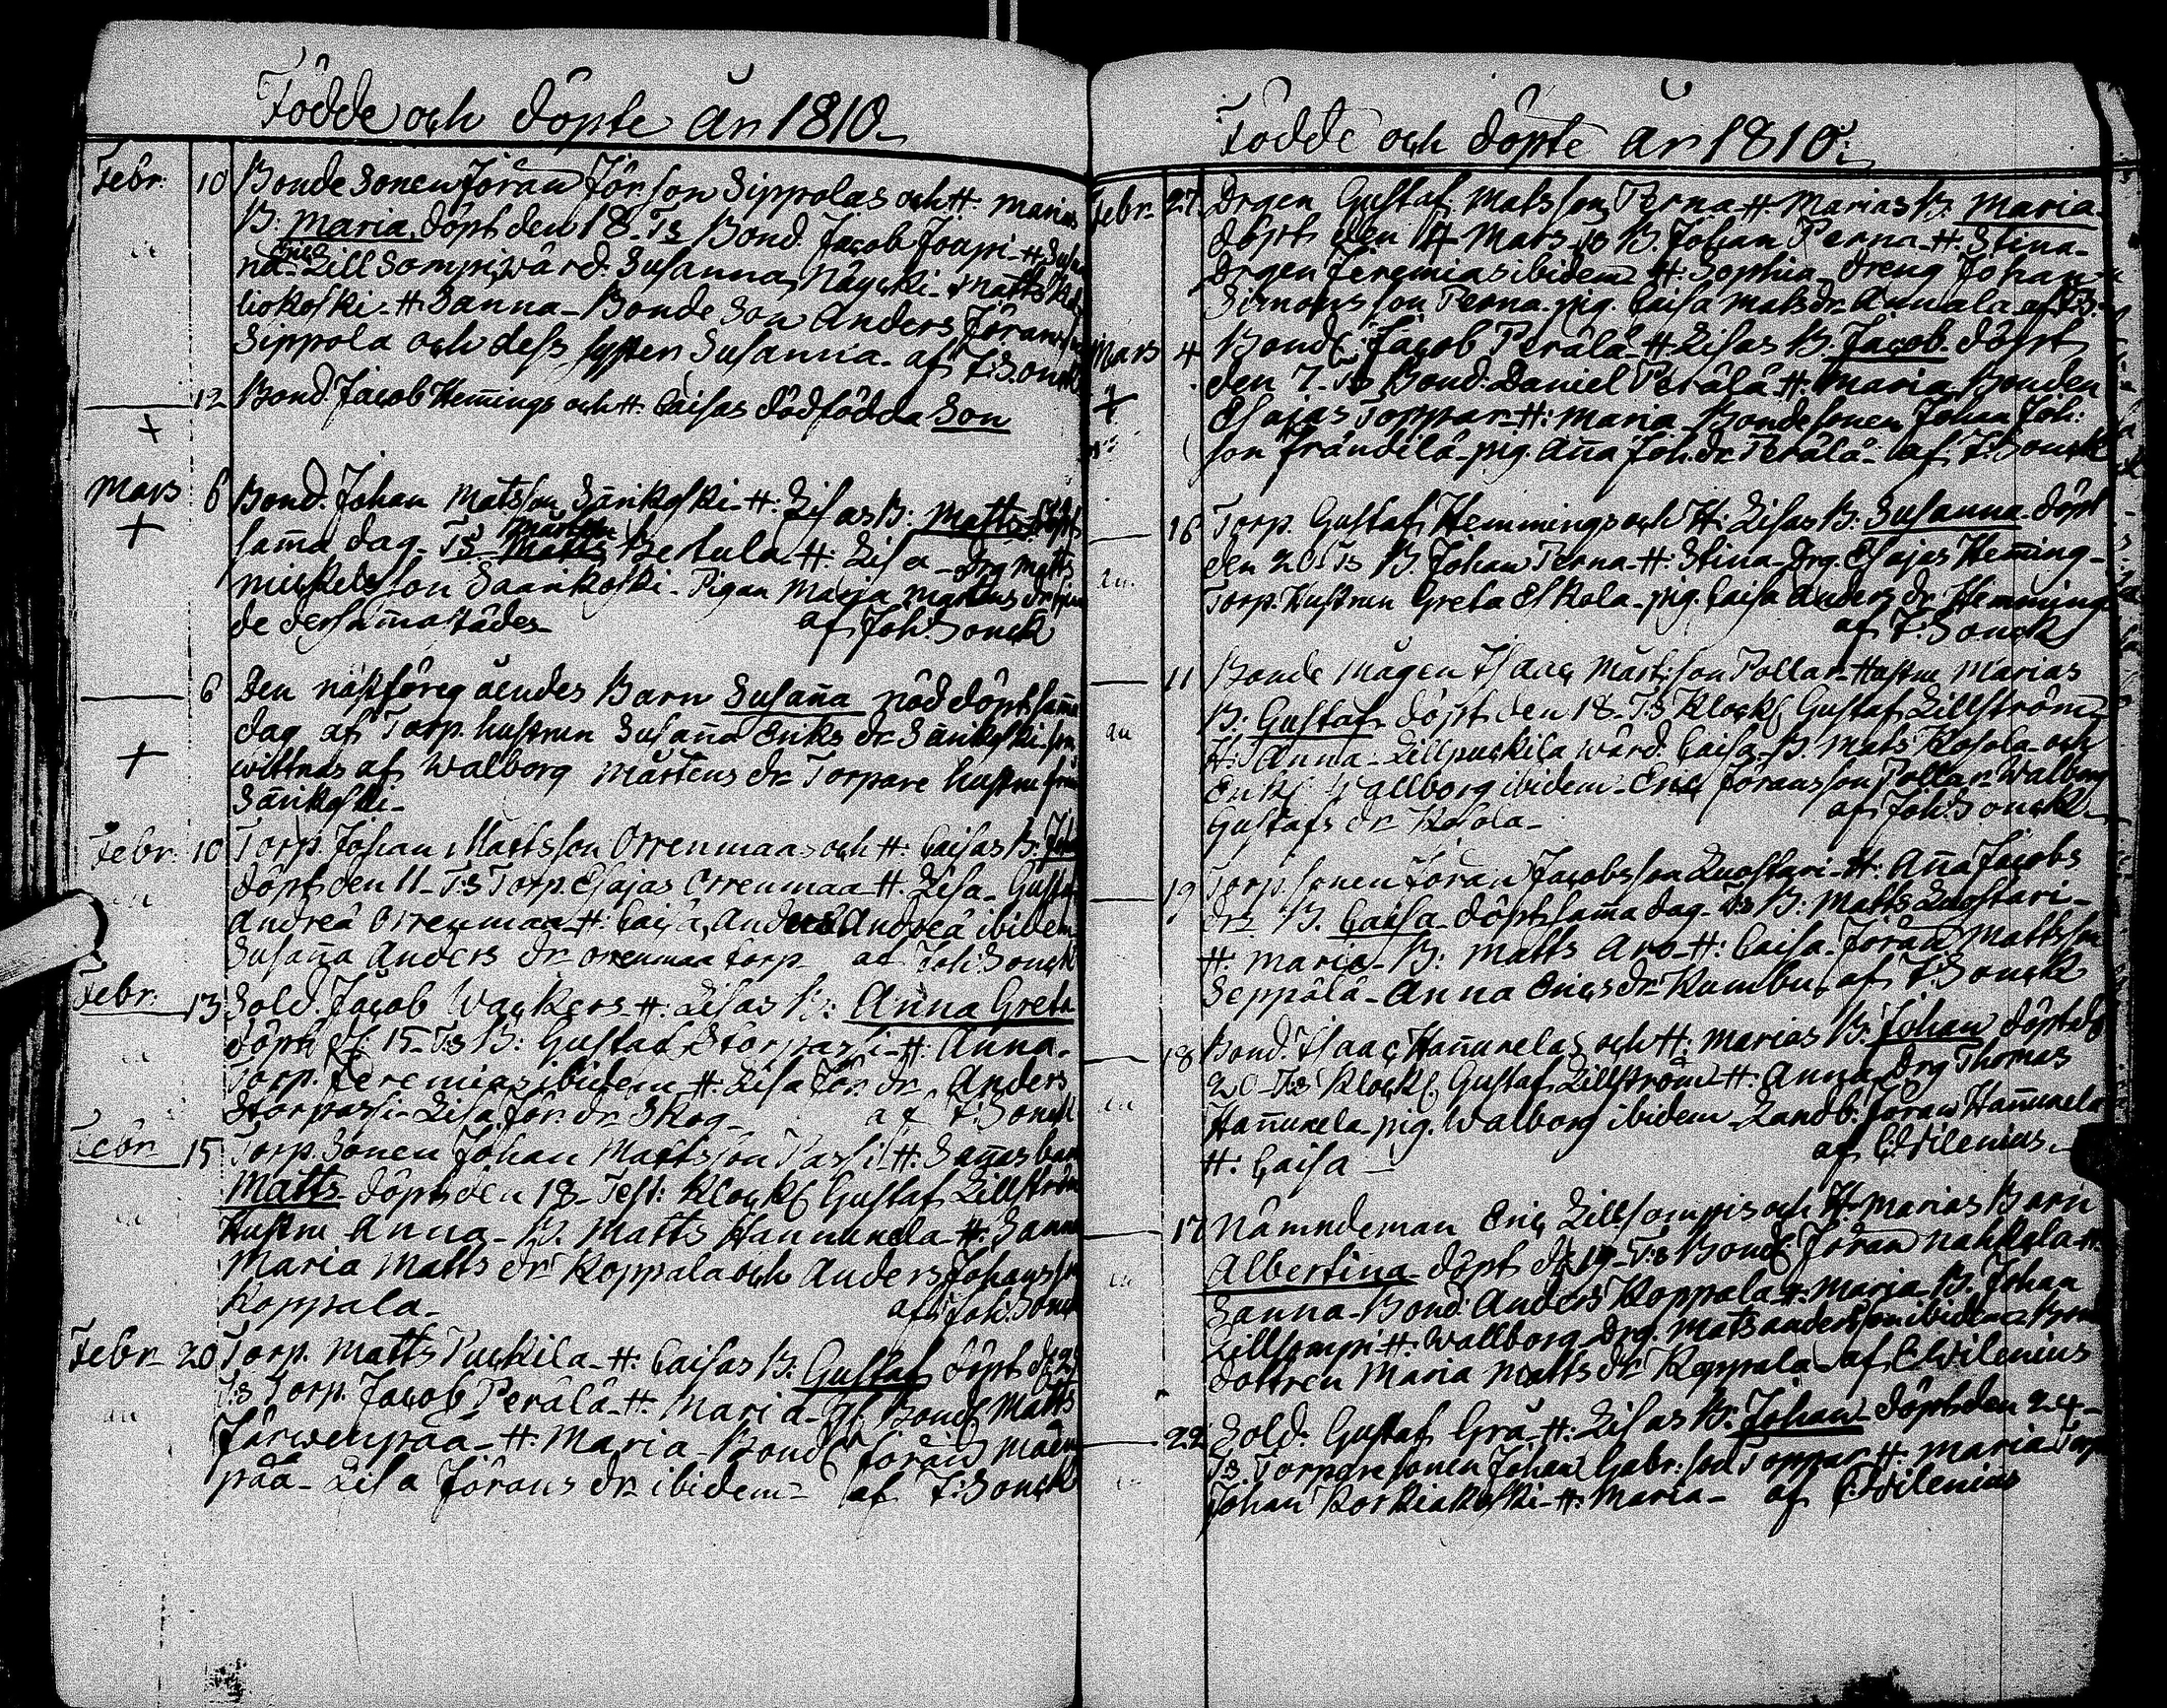 Födde och döpte År 1810
Febr. 10 Bonde Sonen Jöran Jörsson Sippolas och H. Marias
B: Maria döpt den 18 Ts Bond. Jacob Jouppi H. Susan
na Eric Lillsompi wärd. Susanna Näycki Matts
liokoski H. Sanna Bonde Son Anders Jörans son
Sippola och dess syster Susanna af J: Sonck
12 Bond. Jacob Hem̄ings och H. Caisas dödfödda Son
+
Mars 6 Bond. Johan Matsson Särikoski H: Lisas B: Matts döpt
+ sam̄a dag Ts Mårten Matts Bertula H: Lisa Drg Matts
Mickelsson Saarikoski Pigan Marja Mårtens dr
de dersam̄astädes af Joh. Sonck
6 Den näst föregåendes Barn Susan̄a nöd döpt sam̄a
dag af Torp. hustrun Susan̄a Eriks dr Särikoski
+ wittnas af Walborg Mårtens dr Torpare hustru från
Särikoski
Febr. 10 Torp. Johan Mattsson Orrenmaas och H: Caisas B: Joh
döpt den 11 T:s Torp. Esajas Orrenmaa H. Lisa Gustaf
Andreä Orrenmaa H. Caisa, Anders Andreä ibidem
Susan̄a Anders dr Orrenmaa torp af Joh: Sonck
Febr. 13 Sold. Jacob Wackers H: Lisas B: Anna Greta
döpt d: 15 T:s B: Gustaf Storpassi H: Anna
Torp. Jeremias ibidem H. Lisa Jör. dr Anders
Storpassi Lisa Jör. dr Skog af J: Sonck
Febr. 15 Torp. Sonen Johan Mattsson Passi H: San̄as barn
Matts döpt den 18 Test: Klock Gustaf Lillström
Hustru Anna B. Matts Hannukela H. Sanna
Maria Matts dr Koppala och Anders Johansson
Koppala af Joh: Sonck
Febr. 20 Torp. Matts Puckila H. Caisas B: Gustaf döpt d:
T:s Torp. Jacob Perälä H. Maria Bond Matts
Järwenpää H. Maria Bond Jöran Mäen
pää Lisa Jörans dr ibidem af J: Sonck
Födde och döpte År 1810
Febr. 27 Drgen Gustaf Matsson Perna H. Marias B. Maria
döpt den 14 Mars Ts B. Johan Perna H. Stina
Drgen Jeremias ibidem H. Sophia Dreng Johan
Simonsson Perna pig. Caisa Mats dr Annala af J:S.
Mars 4 Bond Jacob Perälä H Lisas B. Jacob döpt
+ den 7 Ts Bond. Daniel Perälä H. Maria Bonden
Esajas Toppar H: Maria Bonde sonen Johan Joh:
son Frändilä pig. An̄a Joh. dr Perälä af J: Sonck
16 Torp. Gustaf Hemmings och H: Lisas B: Susanna döpt
den 20 Ts B. Johan Perna H. Stina Drg. Esajas Hem̄ing
Torp. Hustrun Greta Eskola pig. Caisa Anders dr Hemming
af J: Sonck
11 Bonde mågen Isaac Mårt:son Pollar Hustru Marias
B: Gustaf döpt den 18 T:s Klock Gustaf Lillström
H: Anna Lillpuckila wärd. Caisa B. Mats Kosola och
Enk Wallborg ibidem Eric Jöransson Pollar Walborg
Gustafs dr Kosola af Joh: Sonck
19 Torp. sonen Jöran Jacobsson Luostari H: An̄a Jacobs
dr B. Caisa döpt sam̄a dag Ts B: Matts Luostari
H. Maria B: Matts Aro H: Caisa Jöran Mattsson
Seppälä Anna Erics dr Rumbu af J: Sonck
18 Bond. Isaac Han̄ukelas och H: Marias B. Johan döpt d
20 Ts Klock Gustaf Lillström H: Anna Drg Thomas
Han̄ukela pig. Walborg ibidem Landb: Jöran Han̄ukela
H: Caisa af C: Wilenius
17 Nämndeman Eric Lillsompis och H. Marias Barn
Albertina döpt d 19 T:s Bond Jöran Nahkola H.
Sanna Bond: Anders Koppala H: Maria B. Johan
Lillsompi H: Wallborg Drg. Mats Andersson ibidem Bond
dottren Maria Matts dr Koppala af C Wilenius
22 Sold. Gustaf Grå H: Lisas B: Johan döpt den 24
Ts. Torpare sonen Johan Gabr: son Toppar H: Maria Torp
Johan Korkiakoski H: Maria af C: Wilenius